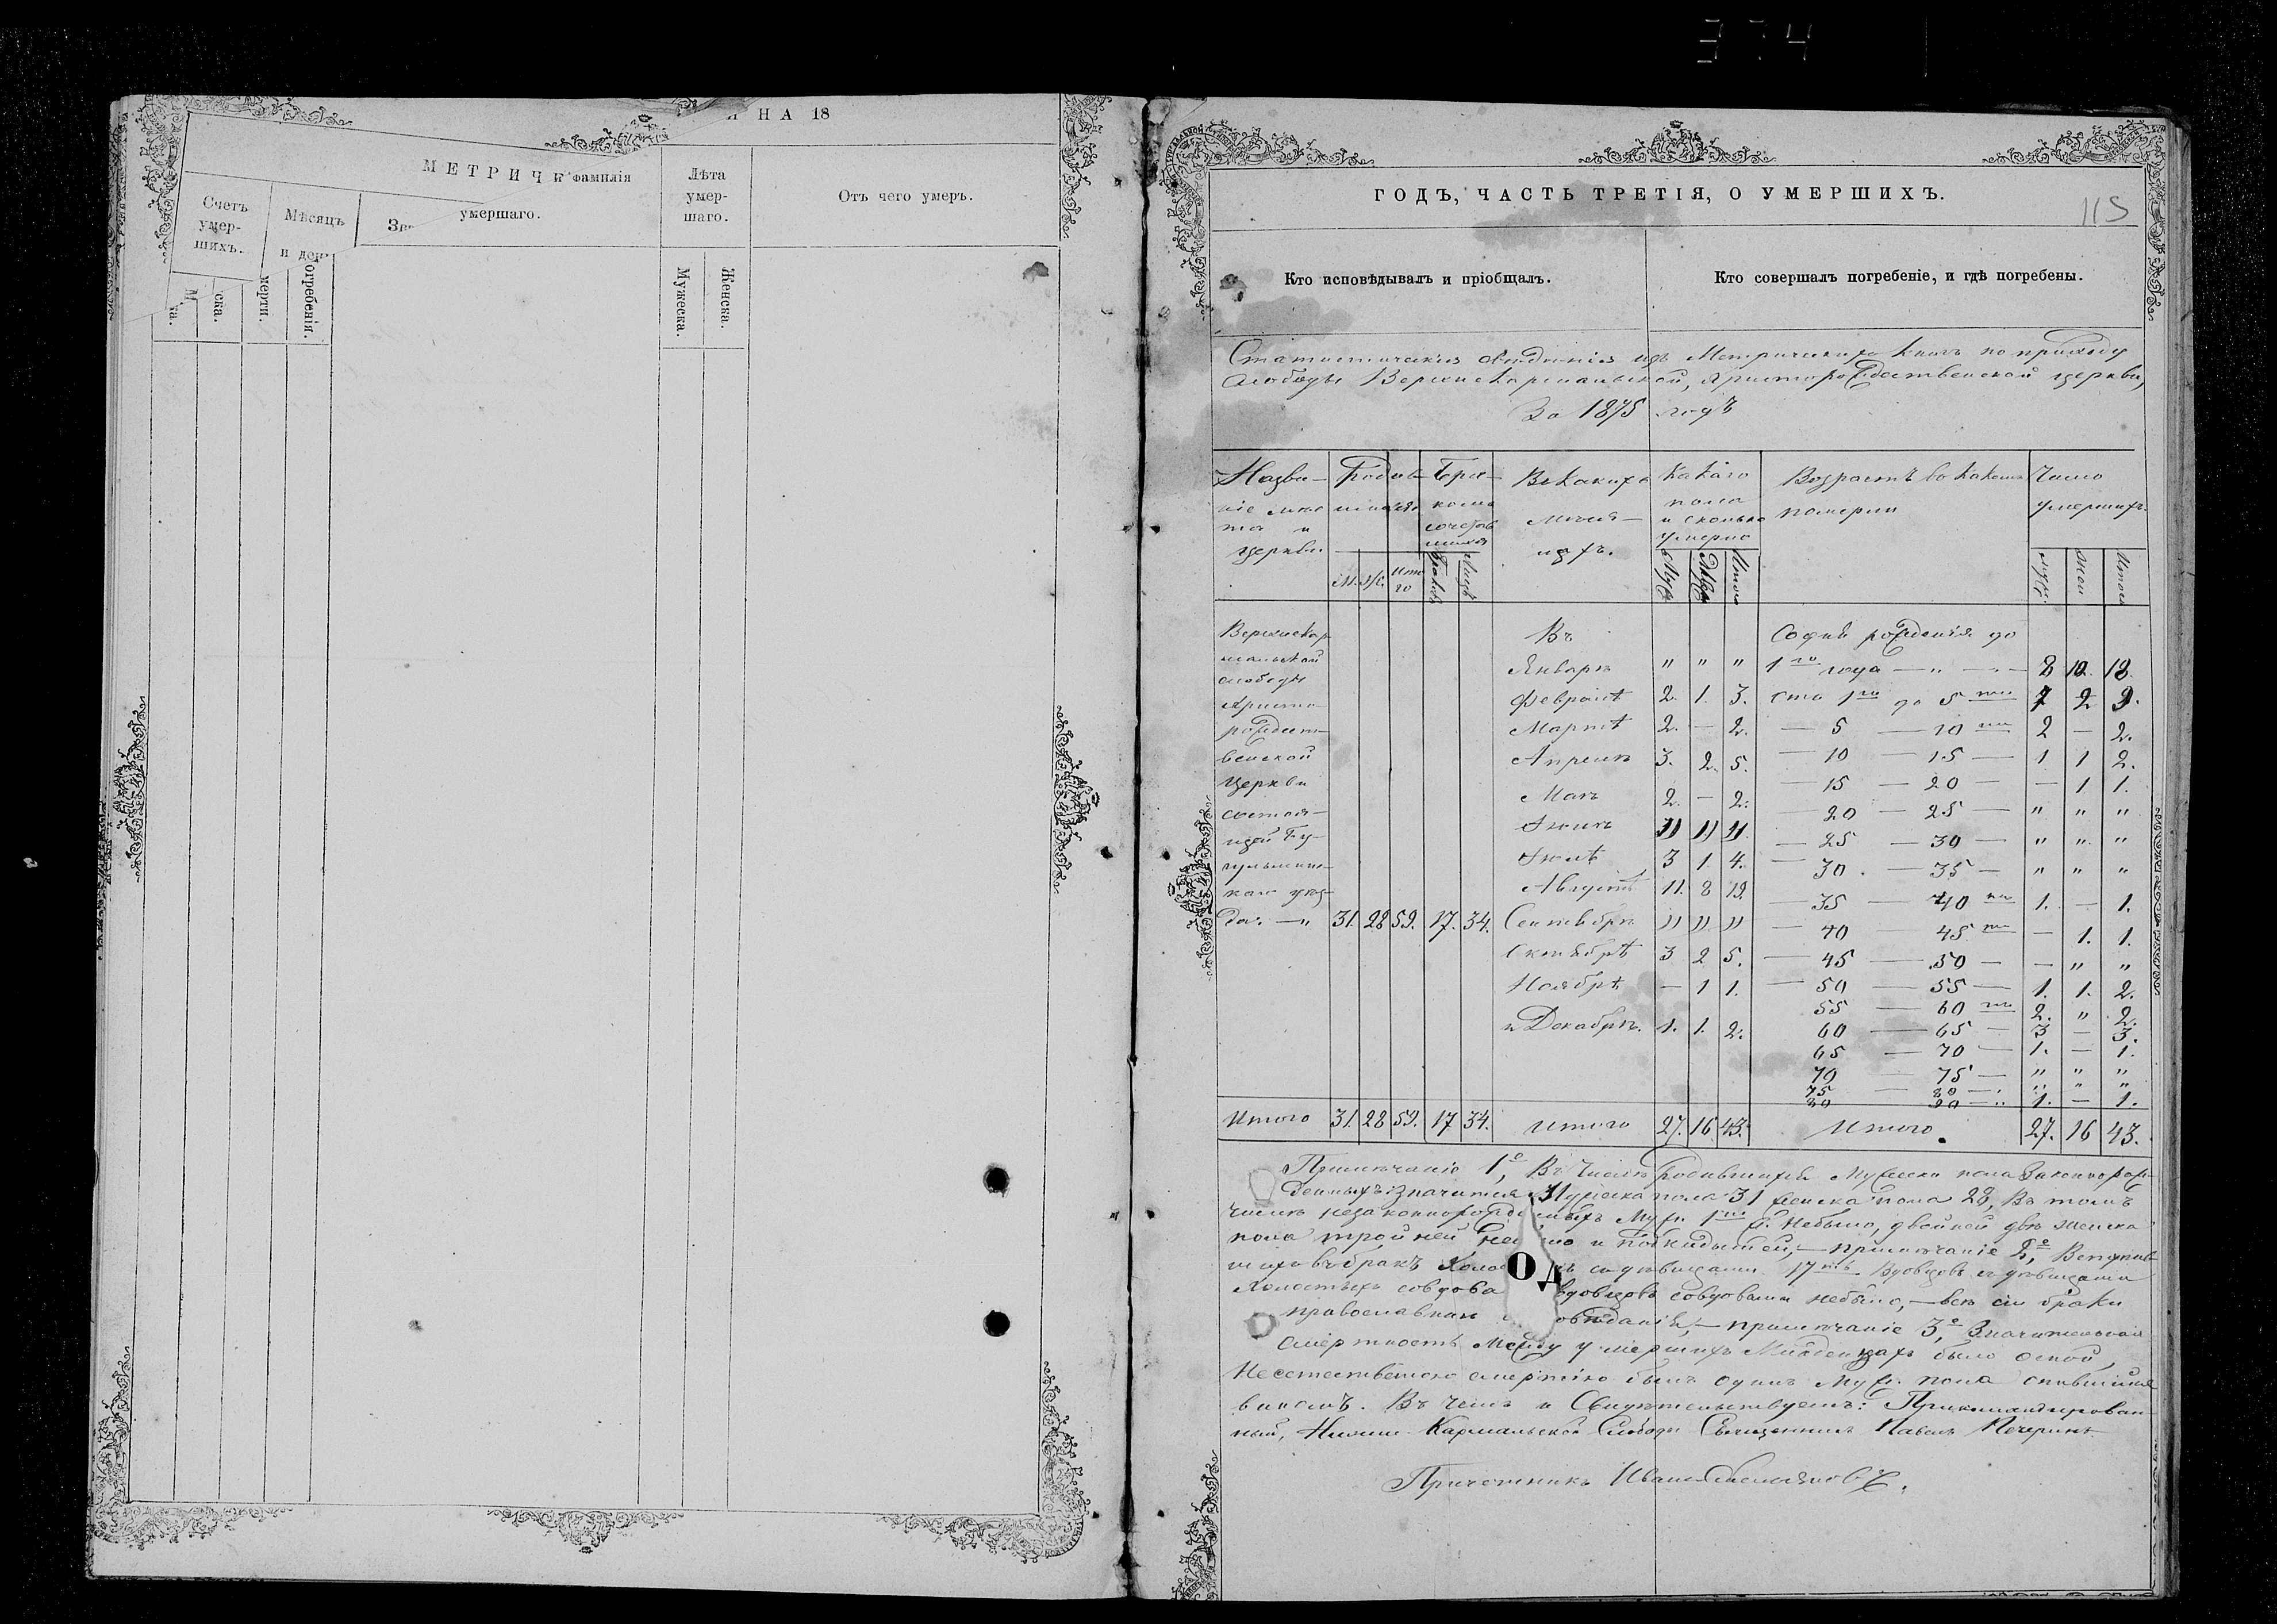 374
Н А 18
МЕТРИЧ
Счетъ умер- шихъ.
Мѣсяцъ и ден
Зв
фамилія умершаго.
Лѣта умер- шаго.
Отъ чего умеръ.
ска.
мерти.
огребенія.
Мужеска.
Женска.
115
ГОДЪ, ЧАСТЬ ТРЕТІЯ, О УМЕРШИХЪ.
Кто исповѣдывалъ и пріобщалъ.
Кто совершалъ погребеніе, и гдѣ погребены.
Статистическія свѣденія изъ Метрическихъ книгъ по приходу
слободы Верхнекармальской, Христорождественской церкви,
За 1875 годъ
Назва- ніе мѣс та и церкви
Родив- шихся
М. Ж. Ито го
Бра- комъ сочетав шихся
Браковъ Лицъ
Въ какихъ мѣся- цахъ.
Какаго пола и сколько умерло
Муж Жен Итого
Возрастъ въ какомъ померли
Число умершихъ
Муж. Жен Итого
Верхнекар-
мальской
слободы
Христо-
рождест-
венской
Церкви
состоя-
щей Бу-
гульминс-
каго уѣз-
да: — " 31. 28 59. 17. 34.
Въ
Январѣ " " "
Февралѣ 2. 1. 3.
Мартѣ 2. — 2.
Апрелѣ 3. 2. 5.
Маѣ 2. — 2.
Іюнѣ " " "
Іюлѣ 3 1. 4.
Августѣ 11. 8 19.
Сентябрѣ " " "
Октябрѣ 3 2 5.
Ноябрѣ — 1 1.
и Декабрѣ. 1. 1. 2.
Со дня рожденія до
1го года — " — 8 10. 18.
Отъ 1го до 5ти 7 2 9.
— 5 — 10ти 2 — 2.
— 10 — 15 — 1 1 2.
— 15 — 20 — — 1. 1.
— 20 — 25 — " " "
— 25 — 30 — " " "
— 30 — 35 — " " "
— 35 — 40ка 1. — 1.
— 40 — 45ти — 1. 1.
— 45 — 50 — — " "
— 50 — 55 — 1. 1. 2.
55 — 60ти 2. " 2.
60 — 65 — 3 — 3.
65 — 70 — 1. — 1.
70 — 75 — " " "
75 — 80 — " " "
80 — 90 — 1. — 1.
Итого 31. 28 59. 17 34. Итого 27. 16 43. Итого 27. 16 43.
Примѣчаніе 1е, Въ числѣ родившихся Мужеска пола Законнорож-
денныхъ значится Мужеска пола 31 женска пола 28, Въ томъ
числѣ незаконнорожденныхъ Муж. 1 небыло, двойней двѣ женска
пола тройней и подкидышей, — примѣчаніе 2е, Вступив-
шихъ въ бракъ съ дѣвицами 17ть Вдовцовъ съ дѣвицами
Холостыхъ со вдова вдовцовъ со вдовами небыло, — всѣ сіи браки
православнаго — примѣчаніе 3е, Значительная
смертность между умершихъ Младенцахъ было оспой
Неестественною смертію былъ одинъ Муж. пола опившійся
виномъ. Въ чемъ и Свидѣтельствуемъ: Прикомандирован-
ный, Нижне Кармальской Слободы Священникъ Павелъ Печеринъ
Причетникъ Иванъ
ОД